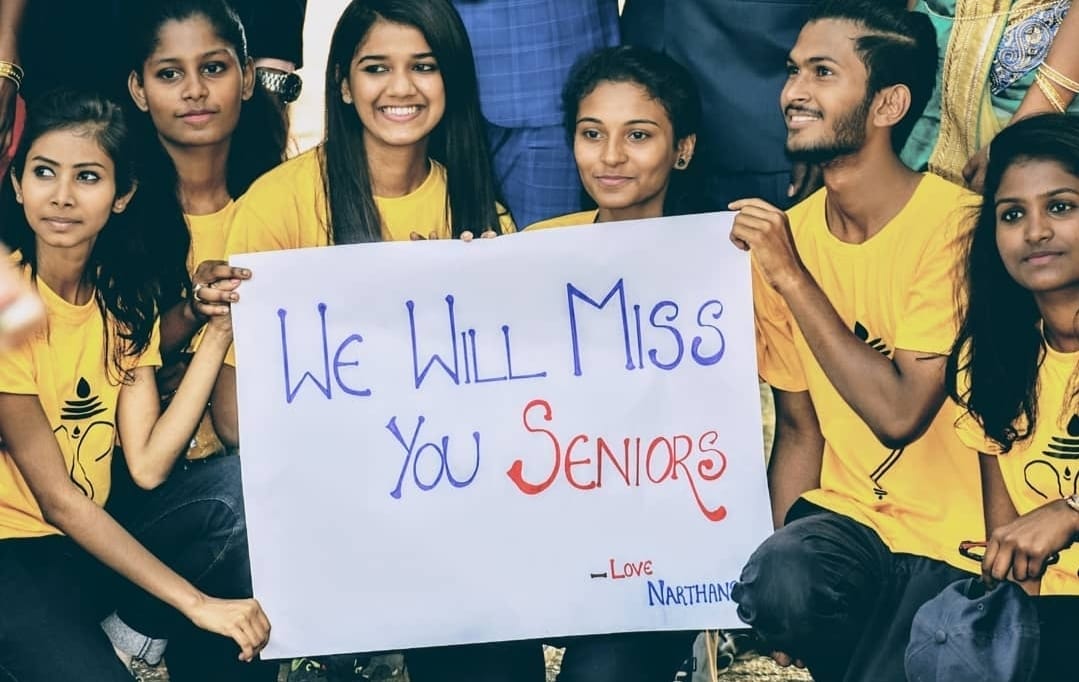 We Will Miss
You Seniors
- Love
Narthans